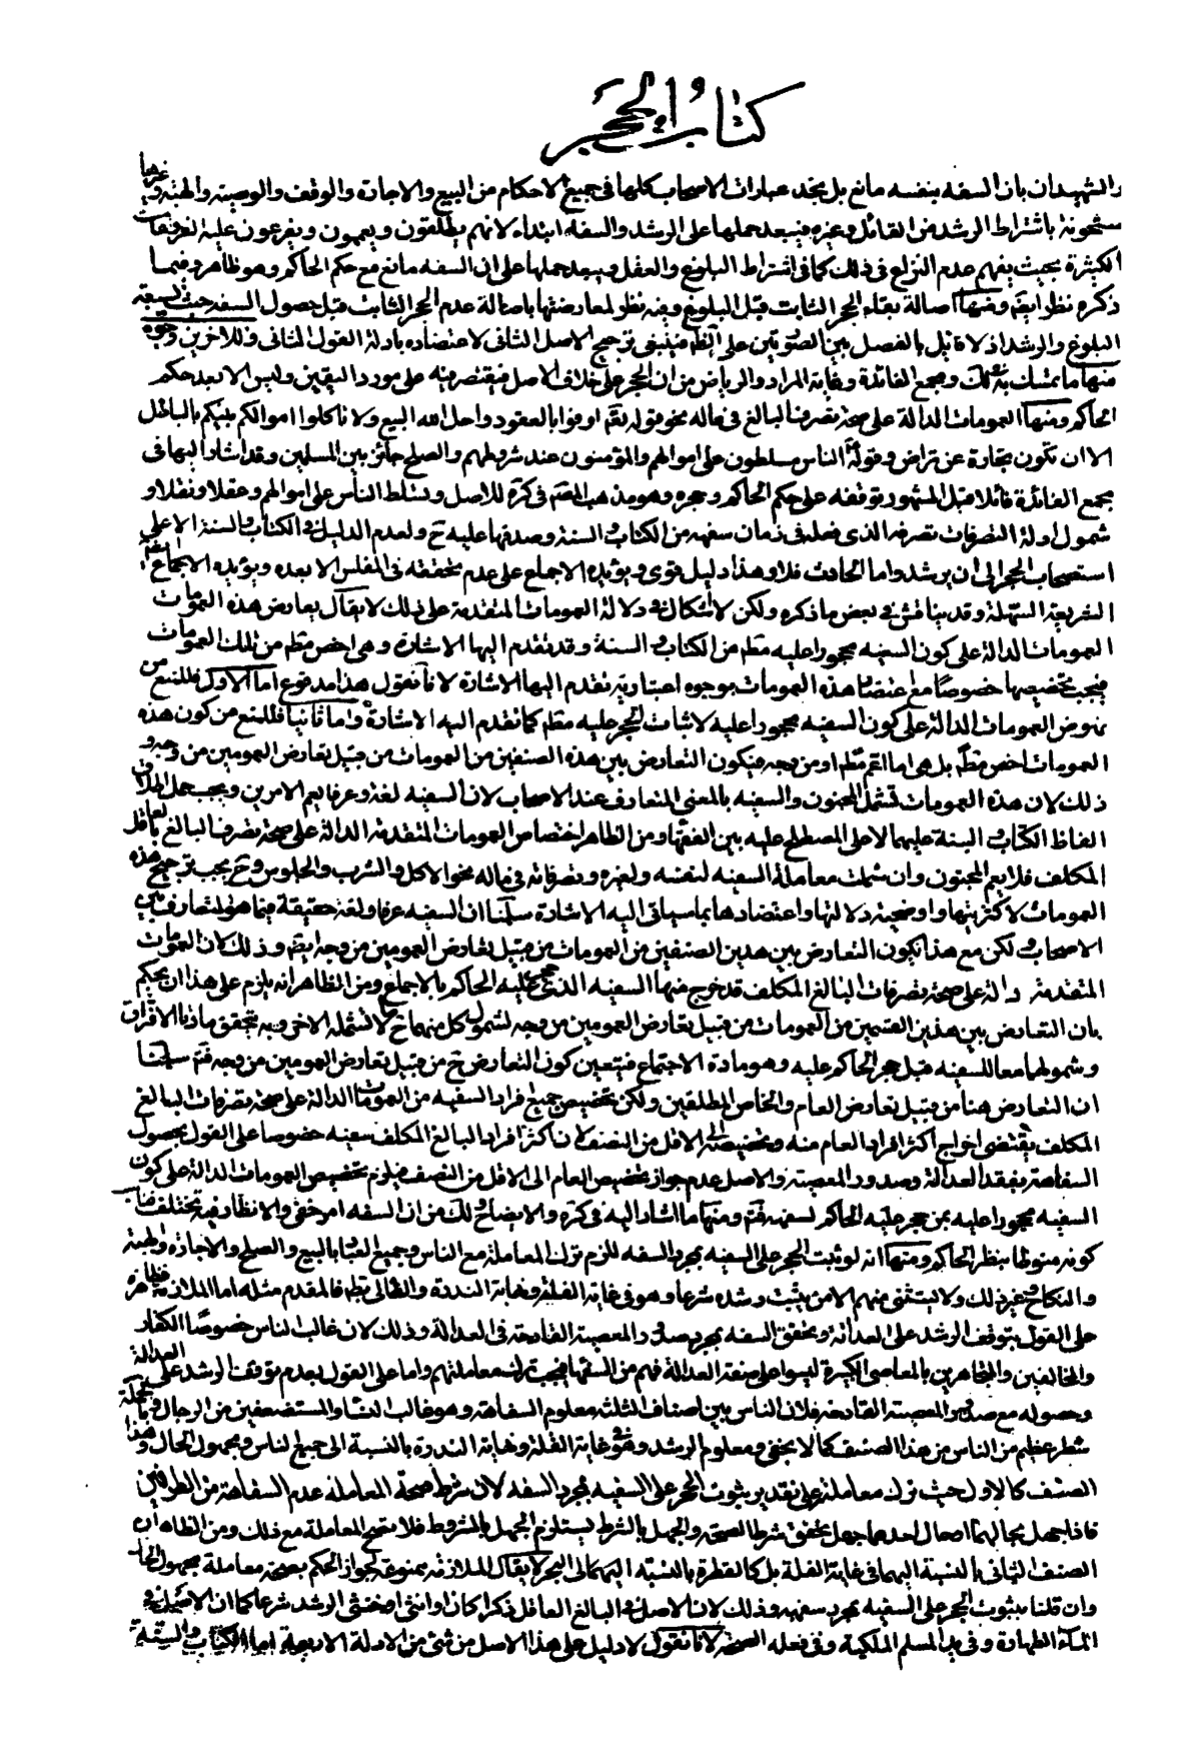 كتاب الحجر
والشهيدان بان السفه بنفسه مانع بل نجد عبارات الاصحاب كلها في جميع الاحكام من البيع والاجارة والوقف والوصية والهبة وغيرها
مشحونة باشتراط الرشد من القائل وغيره فيبعد حملها على الرشد والسفه ابتداء لانهم يطلقون ويعممون ويفرعون عليه التفريعات
الكثيرة بحيث يفهم عدم النزاع في ذلك كما في اشتراط البلوغ والعقل ويبعد حملها على ان السفه مانع مع حكم الحاكم وهو ظاهر وفيما
ذكره نظر ايضا ومنها اصالة بقاء الحجر الثابت قبل البلوغ وفيه نظر لمعارضتها باصالة عدم الحجر الثابت قبل حصول السفه حيث
البلوغ والرشد اذ لا قائل بالفصل بين الصورتين على الظ فينبغي ترجيح الاصل الثاني لاعتضاده بادلة القول الثاني وللاخرين وجوه
منها ما تمسك به في لك ومجمع الفائدة وغاية المراد والرياض من ان الحجر على خلاف الاصل فيقتصر فيه على مورد اليقين وليس الا بعد حكم
الحاكم ومنها العمومات الدالة على صحة تصرف البالغ في ماله نحو قوله تعم اوفوا بالعقود واحل الله البيع ولا تاكلوا اموالكم بينكم بالباطل
الا ان تكون تجارة عن تراض وقوله الناس مسلطون على اموالهم والمؤمنون عند شروطهم والصلح جائز بين المسلمين وقد اشار اليها في
مجمع الفائدة قائلا قيل المشهور توقفه على حكم الحاكم وحجره وهو مذهب المصنف في كره للاصل وتسلط الناس على اموالهم وعقلا ونقلا و
شمول ادلة التصرفات تصرفه الذي فعله في زمان سفهه من الكتاب والسنة وصدقها عليه ح ولعدم الدليل في الكتاب والسنة الا على
استصحاب الحجر الى ان يرشد واما الحادث فلا وهذا دليل قوي ويؤيده الاجماع على عدم تحققه في المفلس الا بعده ويؤيده الاجماع
الشريعة السهلة وقد يناقش في بعض ما ذكره ولكن لا اشكال في دلالة العمومات المتقدمة على ذلك لا يقال يعارض هذه العمومات
العمومات الدالة على كون السفيه محجورا عليه مطم من الكتاب والسنة وقد تقدم اليها الاشارة وهي اخص مطم من تلك العمومات
فيجب تخصيصها خصوصا مع اعتضاد هذه العمومات بوجوه اعتبارية تقدم اليها الاشارة لانا نقول هذا مدفوع اما الاول فللمنع من
نهوض العمومات الدالة على كون السفيه محجورا عليه لاثبات الحجر عليه مطم كما تقدم اليه الاشارة واما ثانيا فللمنع من كون هذه
العمومات اخص مطم بل هي اما اعم مطم او من وجه فيكون التعارض بين هذه الصنفين من العمومات من قبيل تعارض العمومين من وجه و
ذلك لان هذه العمومات تشمل المجنون والسفيه بالمعنى المتعارف عند الاصحاب لان السفيه لغة وعرفا يعم الامرين ويجب حمل اطلاق
الفاظ الكتاب والسنة عليهما لا على المصطلح عليه بين الفقهاء ومن الظاهر اختصاص العمومات المتقدمة الدالة على صحة تصرف البالغ العاقل
المكلف فلا يعم المجنون وان شملت معاملة السفيه لنفسه ولغيره وتصرفاته في ماله نحو الاكل والشرب والجلوس وح يجب ترجيح هذه
العمومات لاكثريتها واوضحية دلالتها واعتضادها بما سياتي اليه الاشارة سلمنا ان السفيه عرفا ولغة حقيقة فيما هو المتعارف بين
الاصحاب لكن مع هذا يكون التعارض بين هذين الصنفين من العمومات من قبيل تعارض العمومين من وجه ايضا وذلك لان العمومات
المتقدمة دالة على صحة تصرفات البالغ المكلف قد خرج منها السفيه الذي حجر عليه الحاكم بالاجماع ومن الظاهر انه يلزم على هذا ان يحكم
بان التعارض بين هذين القسمين من العمومات من قبيل تعارض العمومين من وجه لشمول كل منهما ح ما لا تشمله الاخرى وبه يتحقق مادتا الافتراق
وشمولهما معا للسفيه قبل حجر الحاكم عليه وهو مادة الاجتماع فيتعين كون التعارض ح من قبيل تعارض العمومين من وجه فتم سلمنا
ان التعارض هنا من قبيل تعارض العام والخاص المطلقين ولكن تخصيص جميع افراد السفيه من العمومات الدالة على صحة تصرفات البالغ
المكلف يقتضي اخراج اكثر افراد العام منه وتخصيصه الى الاقل من النصف لان اكثر افراد البالغ المكلف سفيه خصوصا على القول بحصول
السفاهة بفقد العدالة وصدور المعصية والاصل عدم جواز تخصيص العام الى الاقل من النصف فيلزم تخصيص العمومات الدالة على كون
السفيه محجورا عليه بمن حجر عليه الحاكم لسفهه فتم ومنها ما اشار اليه في كره والايضاح ولك من ان السفه امر خفي والانظار فيه تختلف فناسب
كونه منوطا بنظر الحاكم ومنها انه لو ثبت الحجر على السفيه بمجرد السفه للزم ترك المعاملة مع الناس وجميع العقود بالبيع والصلح والاجارة والهبة
والنكاح وغير ذلك ولا يستثنى منهم الا من يثبت رشده شرعا وهو في غاية القلة ونهاية الندرة والتالي بط فالمقدم مثله اما الملازمة فظاهرة
على القول بتوقف الرشد على العدالة وتحقق السفه بمجرد صدور المعصية القادحة في العدالة وذلك لان غالب الناس خصوصا الكفار
والمخالفين والمتجاهرين بالمعاصي الكبيرة ليسوا على صفة العدالة فهم من السفهاء فيجب ترك معاملتهم واما على القول بعدم توقف الرشد على العدالة
وحصوله مع صدور المعصية القادحة فلان الناس بين اصناف الثلثة معلوم السفاهة وهو غالب النساء والمستضعفين من الرجال وبالجملة
شطر عظيم من الناس من هذا الصنف كما لا يخفى ومعلوم الرشد وهو في غاية القلة ونهاية الندرة بالنسبة الى جميع الناس ومجهول الحال وهذا
الصنف كالاول حيث ترك معاملته على تقدير ثبوت الحجر على السفيه بمجرد السفه لان شرط صحة المعاملة عدم السفاهة من الطرفين
فاذا جهل بحالهما او حال احدهما جهل بتحقق شرط الصحة والجهل بالشرط يستلزم الجهل بالمشروط فلا تصح المعاملة مع ذلك ومن الظاهر ان
الصنف الثاني بالنسبة اليهما في غاية القلة بل كالقطرة بالنسبة الى البحر لا يقال الملازمة ممنوعة لجواز الحكم بصحة معاملة مجهول الحال
وان قلنا بثبوت الحجر على السفيه بمجرد سفهه وذلك لان الاصل في البالغ العاقل ذكرا كان او انثى او خنثى الرشد شرعا كما ان الاصل في
الماء الطهارة وفي يد المسلم الملكية وفي فعله الصحة لانا نقول لا دليل على هذا الاصل من شئ من الادلة الاربعة اما الكتاب والسنة